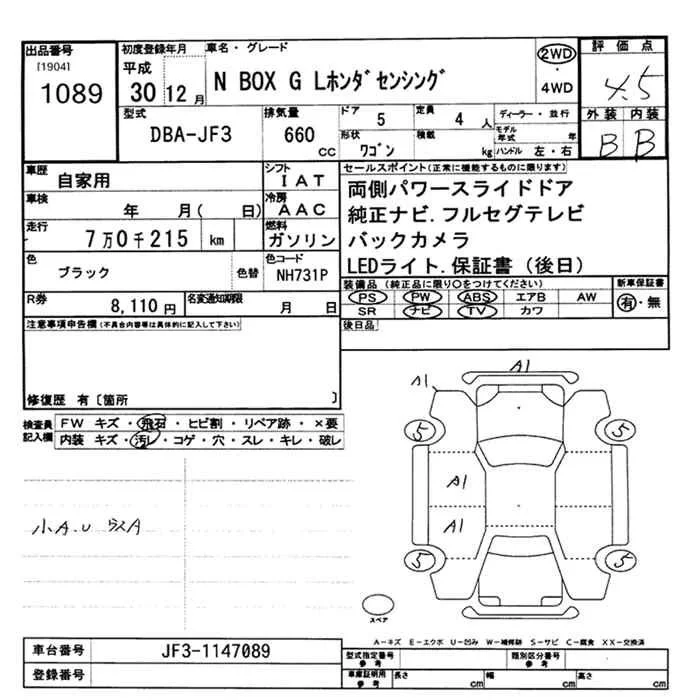 出品番号
[1904]
1089
初度登録年月
平成
30 12月
車名・グレード
N BOX G Lホンダセンシング
2WD
・
4WD
評価点
4.5
外装 内装
B B
型式
DBA-JF3
排気量
660 cc
ドア
5
定員
4 人
形状
ワゴン
積載
kg
ディーラー・並行
モデル年式 年
ハンドル 左・右
車歴
自家用
シフト
IAT
車検
年 月( 日)
冷房
AAC
走行
7万0千215 km
燃料
ガソリン
色
ブラック
色替
色コード
NH731P
R券
8,110円
名変通知期限
月 日
セールスポイント(正常に機能するものに限ります)
両側パワースライドドア
純正ナビ.フルセグテレビ
バックカメラ
LEDライト.保証書(後日)
装備品(純正品に限り○をつけてください)
PS PW ABS エアB AW
SR ナビ TV カワ
新車保証書
有・無
後日品
注意事項申告欄(不具合内容等は具体的に記入して下さい)
修復歴 有〔箇所 〕
検査員記入欄
FW キズ・飛石・ヒビ割・リペア跡・×要
内装 キズ・汚レ・コゲ・穴・スレ・キレ・破レ
小A.U
A1
A1
5 5
A1
A1
5 5
スペア
A-キズ E-エクボ U-凹み W-補修跡 S-サビ C-腐食 XX-交換済
車台番号
JF3-1147089
登録番号
型式指定番号 参考
類別区分番号 参考
車庫証明用 参考
長さ cm
幅 cm
高さ cm